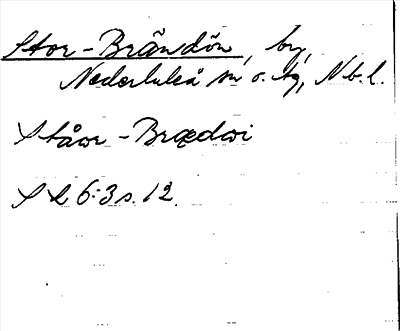 Stor-Brändön, by,
Nederluleå sn o. tg, Nb.l.
Ståor-Brædœi
SL 6:3 s. 12.